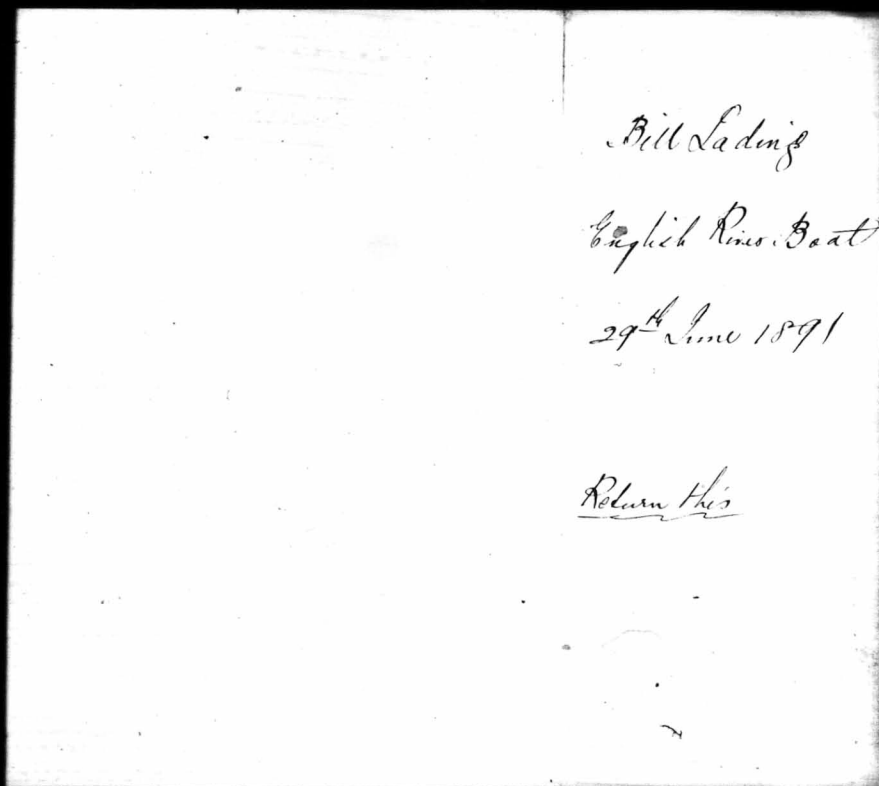 Bill Lading
English River Boat
29th June 1891
Return this